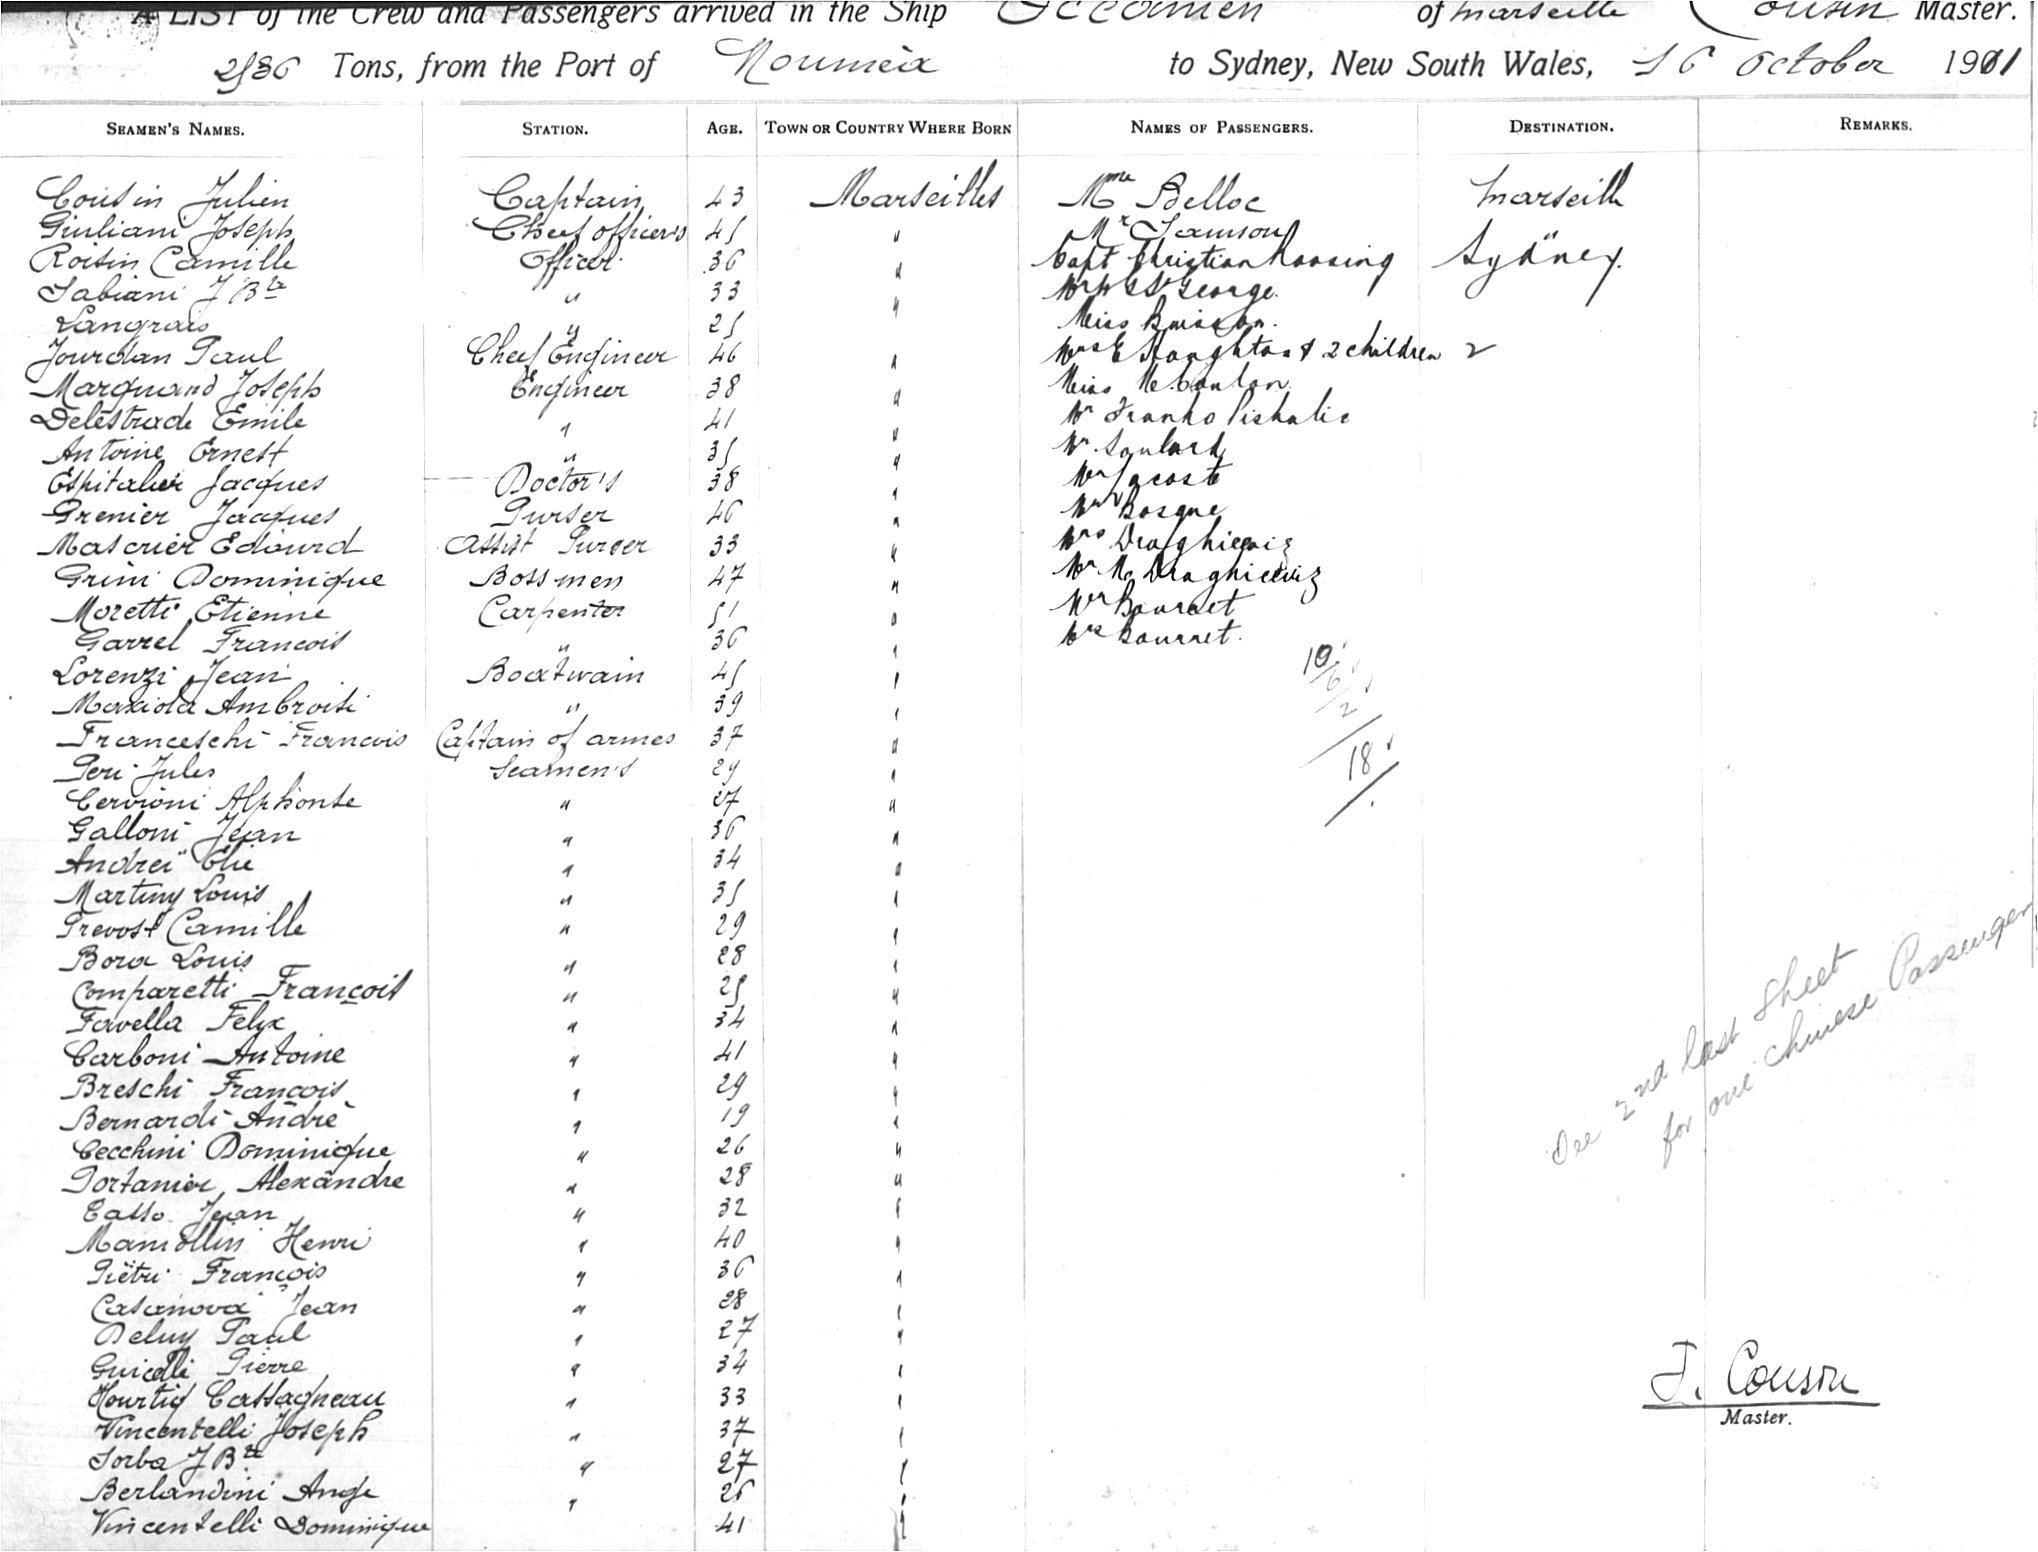 A LIST of the Crew and Passengers arrived in the Ship Oceanien of Marseille Cousin Master.
Tons, from the Port of Nouméa to Sydney, New South Wales, 16 October 1901
SEAMEN'S NAMES. STATION. AGE. TOWN OR COUNTRY WHERE BORN NAMES OF PASSENGERS. DESTINATION. REMARKS.
Cousin Julien Captain 43 Marseilles Mme Belloc Marseille
Giuliani Joseph Chief officer's 45 " Mr "
Roisin Camille Officer 36 " Capt Christian Sydney.
Fabiani J Bte " 33 " St George.
Langrais " 25 Miss Buisson.
Jourdan Paul Chief Engineer 46 " Mrs E Houghton & 2 children 2
Marquand Joseph Engineer 38 " Miss
Delestrade Emile " 41 " Mr Franko
Antoine Ernest " 35 " Mr Soulard
Espitalier Jacques Doctor's 38 " Mr Lacoste
Grenier Jacques Purser 46 " Mr Bosque
Mascrier Edourd Assist Purser 33 " Mrs Draghicewiz
Grini Dominique Bossmen 47 " Mr M. Draghicewiz
Moretti Etienne Carpenter 51 " Mr Bournet
Garrel Francois " 36 " Mrs Bournet.
Lorenzi Jean Boatwain 45 " 10
Maxiola Ambroise " 39 " 6
Franceschi Francois Captain of armes 37 " 2
Peri Jules Seamen's 29 " 18
Cervioni Alphonse " 27 "
Galloni Jean " 36 "
Andrei Elie " 34 "
Martiny Louis " 35 "
Prevost Camille " 29 "
Bora Louis " 28 "
Comparetti François " 25 "
Favella Felix " 34 "
Carboni Antoine " 41 "
Breschi François " 29 "
Bernardi André " 19 "
Cecchini Dominique " 26 "
Portanier Alexandre " 28 "
Casso Jean " 32 "
Henri " 40 "
Piëtri François " 36 "
Casanova Jean " 28 "
Deluy Paul " 27 "
Guicelli Pierre " 34 "
Hourtig Cassagneau " 33 "
Vincentelli Joseph " 37 "
Sorba J Bte " 27 "
Berlandini Ange " 26 "
Vincentelli Dominique 41 "
See 2nd last sheet
for one chinese Passenger
J. Cousin
Master.